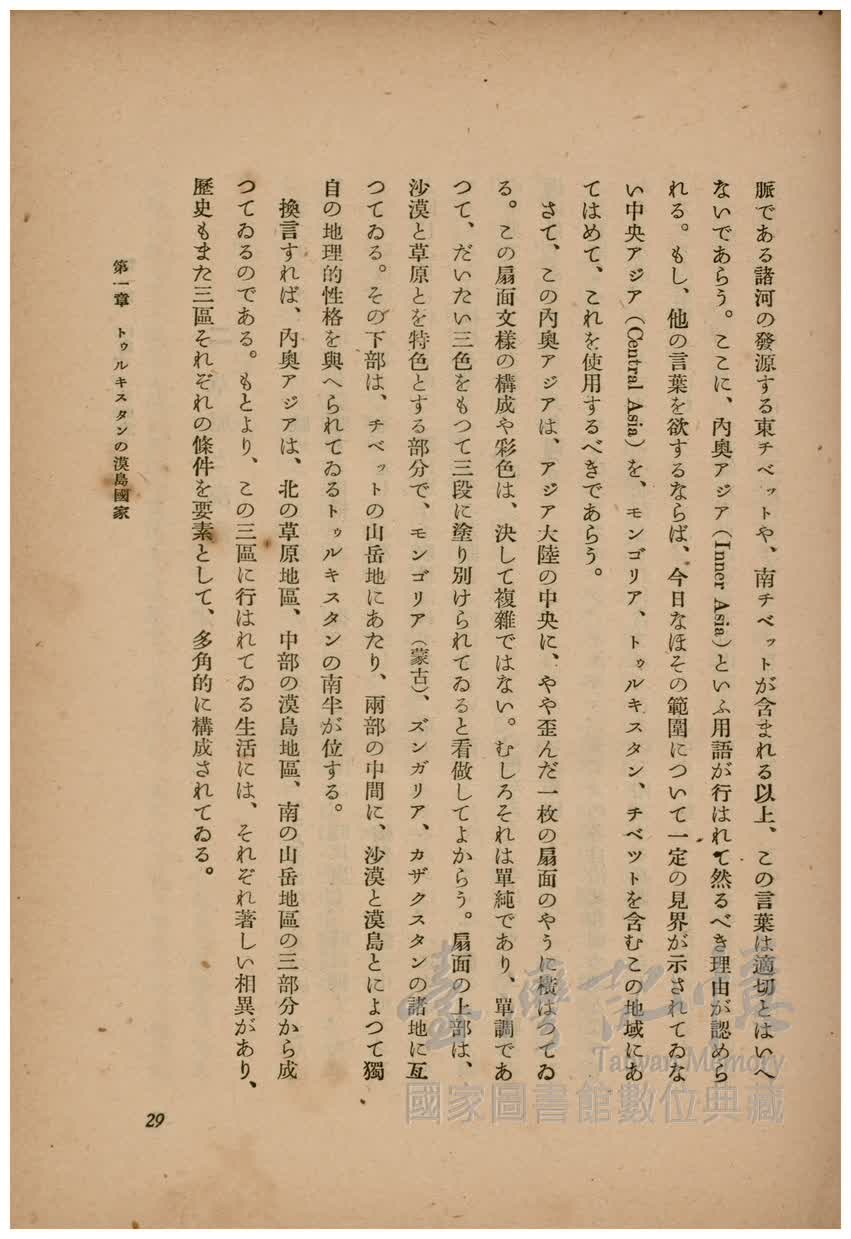 脈である諸河の發源する東チベットや、南チベットが含まれる以上、この言葉は適切とはいへ
ないであらう。ここに、內奧アジア(Inner Asia)といふ用語が行はれて然るべき理由が認めら
れる。もし、他の言葉を欲するならば、今日なほその範圍について一定の見界が示されてゐな
い中央アジア(Central Asia)を、モンゴリア、トゥルキスタン、チベツトを含むこの地域にあ
てはめて、これを使用するべきであらう。
さて、この內奧アジアは、アジア大陸の中央に、やや歪んだ一枚の扇面のやうに橫はつてゐ
る。この扇面文樣の構成や彩色は、決して複雜ではない。むしろそれは單純であり、單調であ
つて、だいたい三色をもつて三段に塗り別けられてゐると看做してよからう。扇面の上部は、
沙漠と草原とを特色とする部分で、モンゴリア(蒙古)、ズンガリア、カザクスタンの諸地に亙
つてゐる。その下部は、チベットの山岳地にあたり、兩部の中間に、沙漠と漠島とによつて獨
自の地理的性格を與へられてゐるトゥルキスタンの南半が位する。
換言すれば、內奧アジアは、北の草原地區、中部の漠島地區、南の山岳地區の三部分から成
つてゐるのである。もとより、この三區に行はれてゐる生活には、それぞれ著しい相異があり、
歷史もまた三區それぞれの條件を要素として、多角的に構成されてゐる。
第一章 トゥルキスタンの漠島國家
29
臺灣記憶
Taiwan Memory
國家圖書館數位典藏